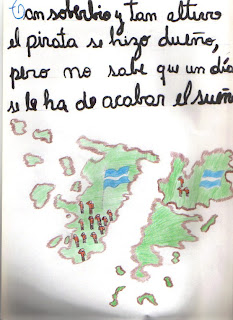 Tan soberbio y tan altivo
el pirata se hizo dueño,
pero no sabe que un día
se le ha de acabar el sueño